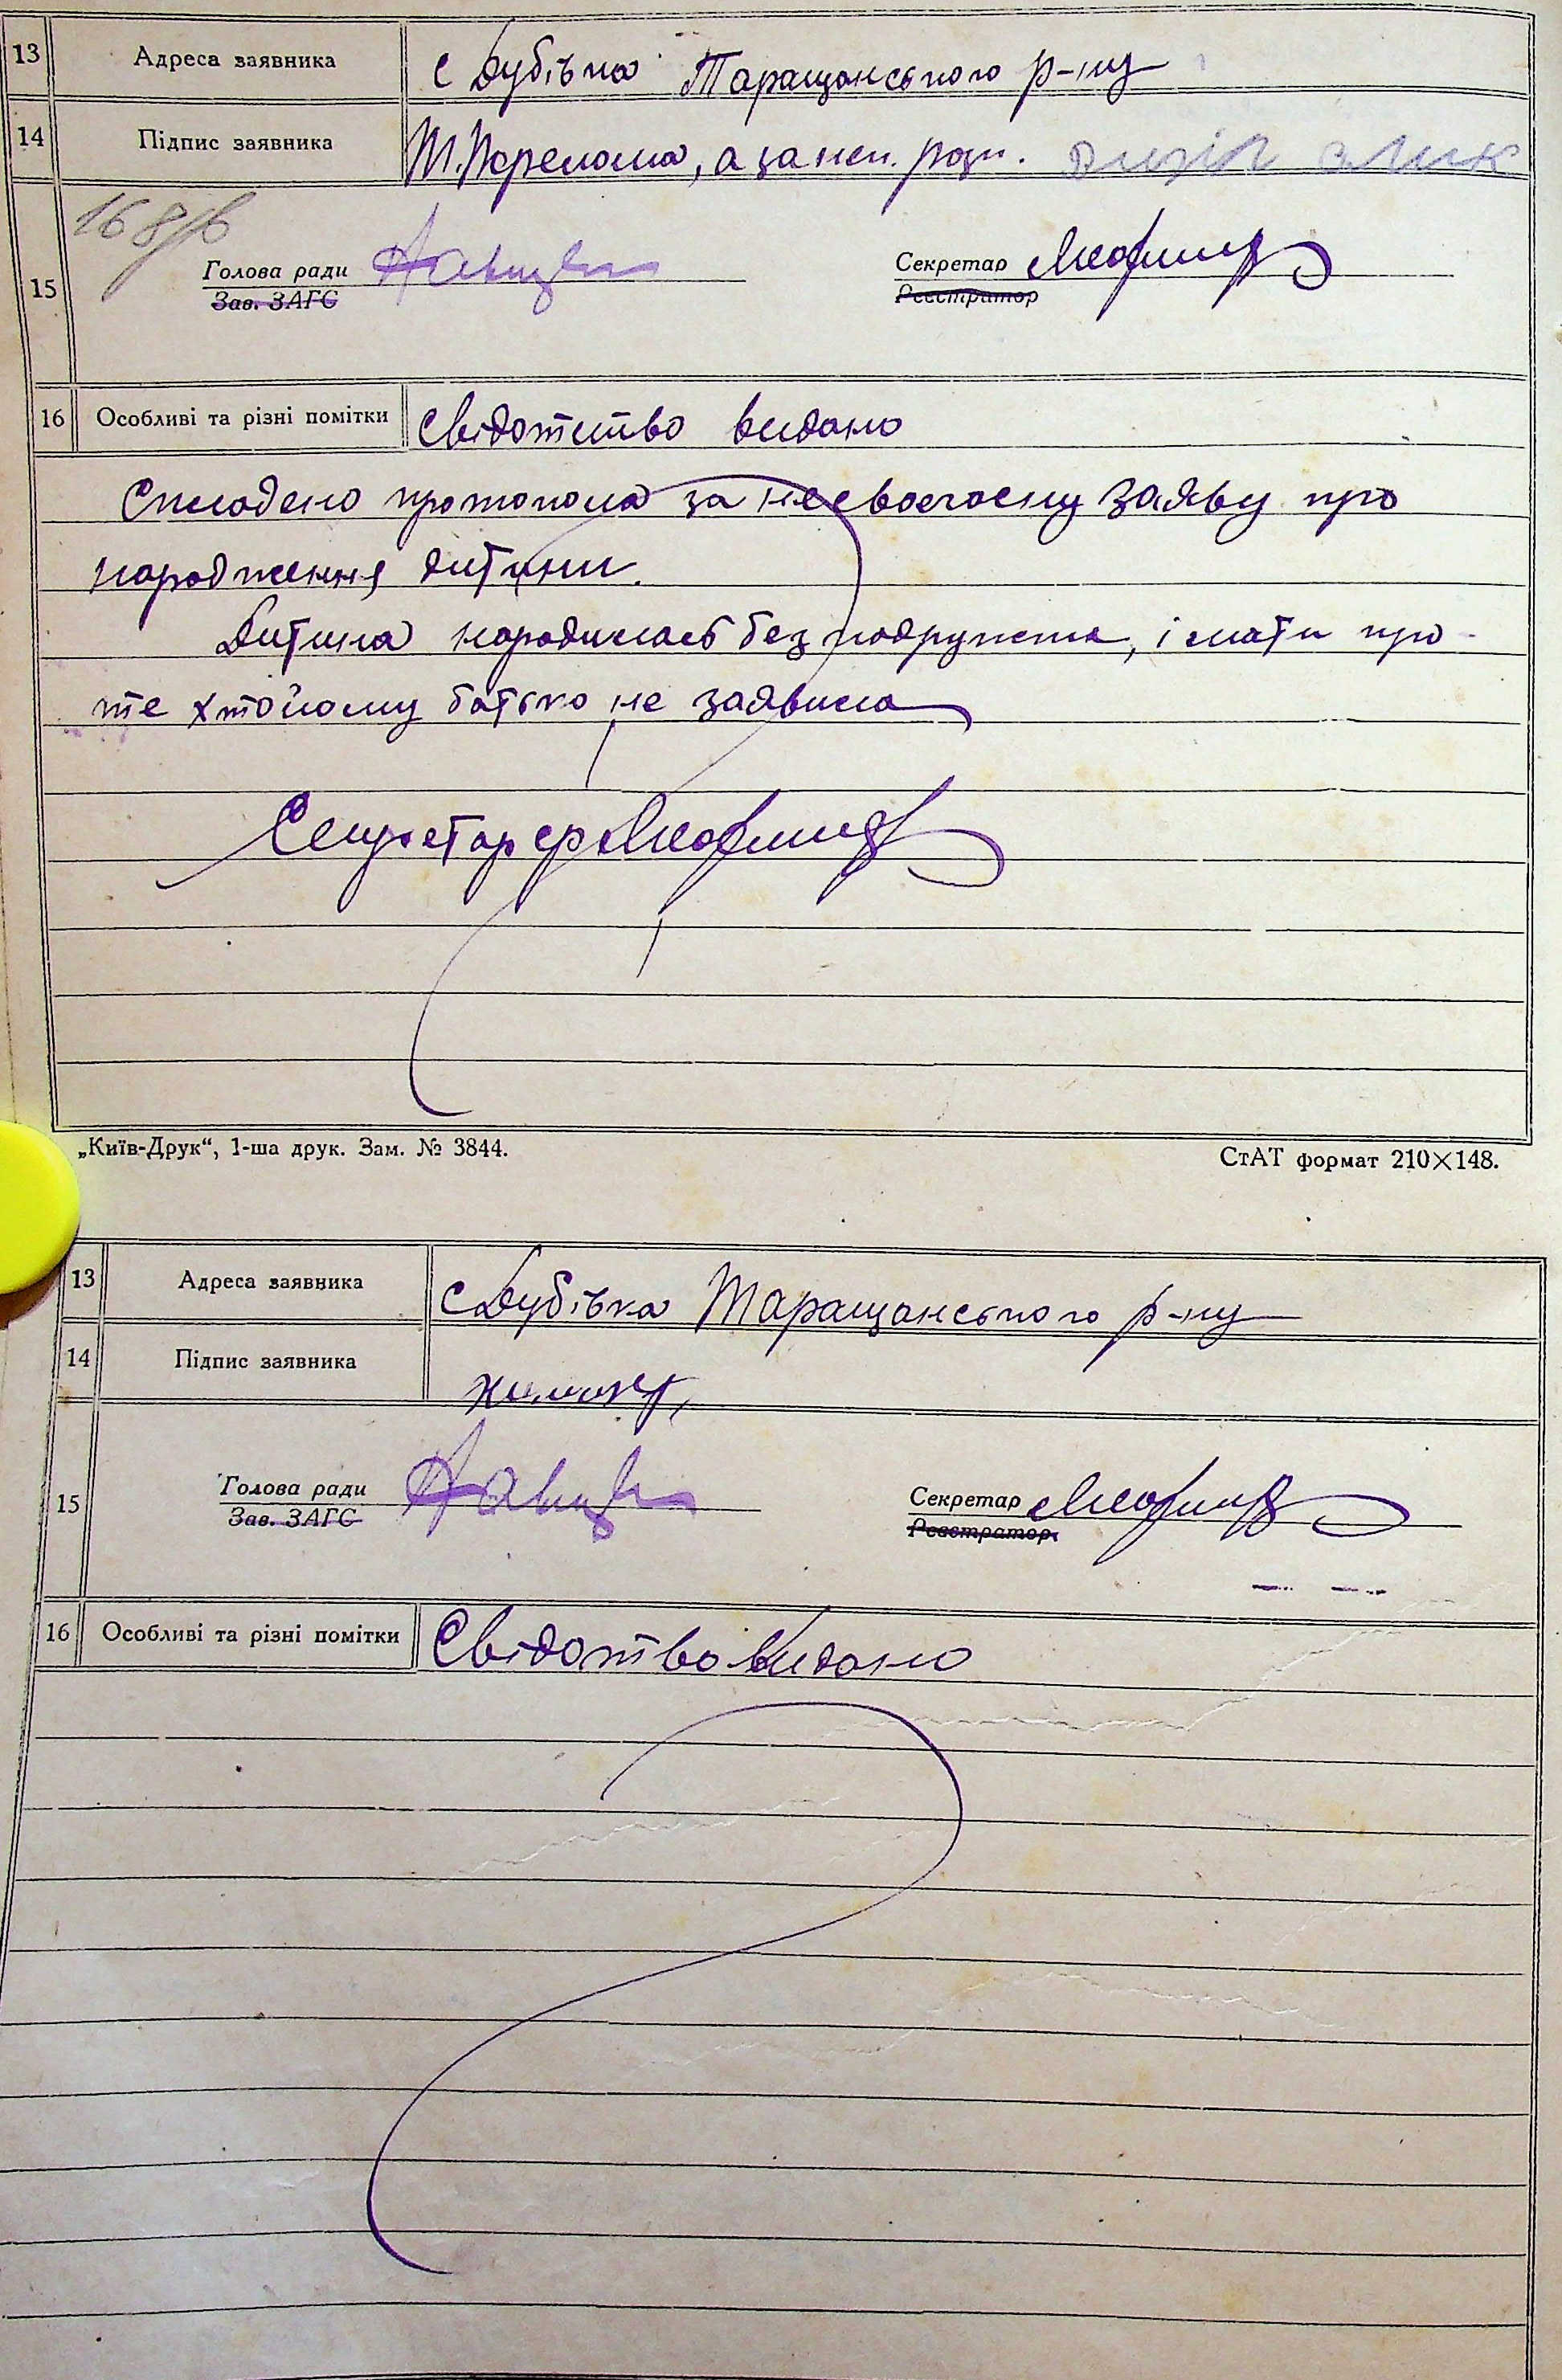 13 Адреса заявника с Дубівка Таращанського р-ну
14 Підпис заявника М. Перелома, а за неп. розп.
168/в
15 Голова ради Секретар
Зав. ЗАГС Реєстратор
16 Особливі та різні помітки Свідотство видано
Складено протокола за несвоєчасну заяву про
народження дитини.
Дитина народилась без подружжя, і мати про
те хто йому батько не заявила
Секретар ср
„Київ-Друк“, 1-ша друк. Зам. № 3844. СтАТ формат 210×148.
13 Адреса заявника с Дубівка Таращанського р-ну
14 Підпис заявника
15 Голова ради Секретар
Зав. ЗАГС Реєстратор
16 Особливі та різні помітки Свідотство видано